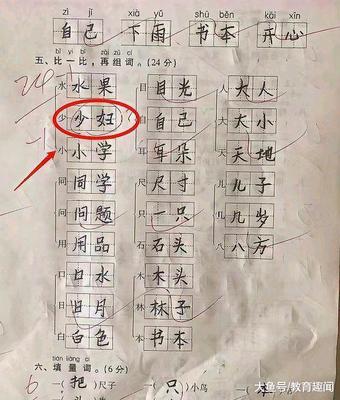 zì jǐ xià yǔ shū běn kāi xīn
自己 下雨 书本 开心
bǐ yì bǐ zài zǔ cí
五、比一比，再组词。(24分)
水 水果 目 目光 人 大人
少 少妇 自 自己 大 大小
小 小学 耳 耳朵 天 天地
同 同学 尺 尺寸 儿 儿子
问 问题 只 一只 几 几岁
用 用品 石 石头 八 八方
口 口水 木 木头
日 日月 林 林子
白 白色 本 书本
tián liàng cí
六、填量词。(6分)
6 一(把)尺子 一(只)小鸟
大鱼号/教育趣闻